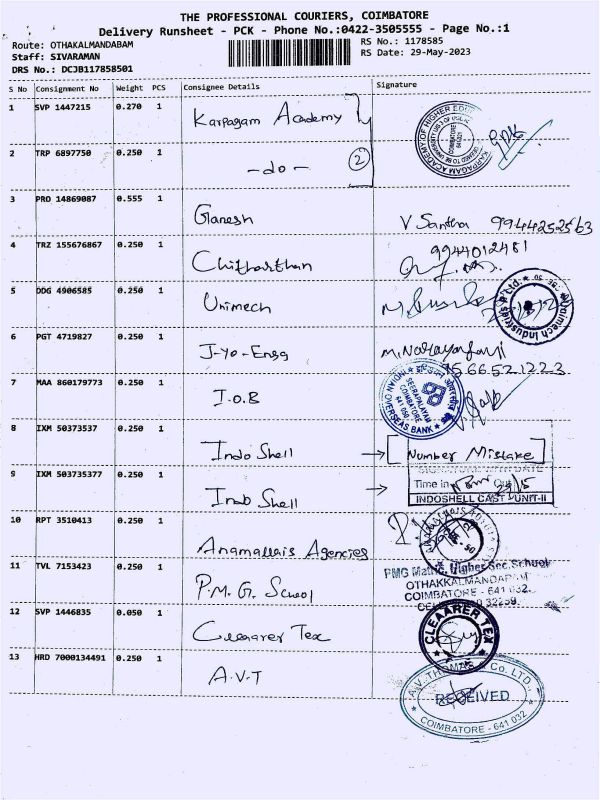 THE PROFESSIONAL COURIERS, COIMBATORE
Delivery Runsheet - PCK - Phone No.:0422-3505555 - Page No.:1
Route: OTHAKALMANDABAM
RS No.: 1178585
Staff: SIVARAMAN
RS Date: 29-May-2023
DRS No.: DCJB117858501
S No Consignment No Weight PCS Consignee Details Signature
1 SVP 1447215 0.270 1 Karpagam Academy
KARPAGAM ACADEMY OF HIGHER EDU
COIMBATORE
2 TRP 6897750 0.250 1 -do- 2
3 PRO 14869087 0.555 1 Ganesh V Santha 9944252563
4 TRZ 155676867 0.250 1 Chitharthan 9944012481
5 DDG 4906585 0.250 1 Unimech
Unimech Industries P Ltd.
6 PGT 4719827 0.250 1 J-yo-Engg
7 MAA 860179773 0.250 1 I.O.B
INDIAN OVERSEAS BANK
SEERAPALAYAM
COIMBATORE
641 050
8 IXM 50373537 0.250 1 Indo Shell → [Number Mistake]
9 IXM 503735377 0.250 1 Indo Shell →
SIGNATURE WITH DATE
Time in Out
INDOSHELL CAST UNIT-II
10 RPT 3510413 0.250 1 Anamallais Agencies
11 TVL 7153423 0.250 1 P.M.G. School
PMG Matric. Higher Sec. School
OTHAKKALMANDAPAM
COIMBATORE - 641 032.
12 SVP 1446835 0.050 1 Cleaarer Tex
CLEAARER TEX
13 HRD 7000134491 0.250 1 A.V.T
A.V. THOMAS & Co. LTD.
RECEIVED
COIMBATORE - 641 032